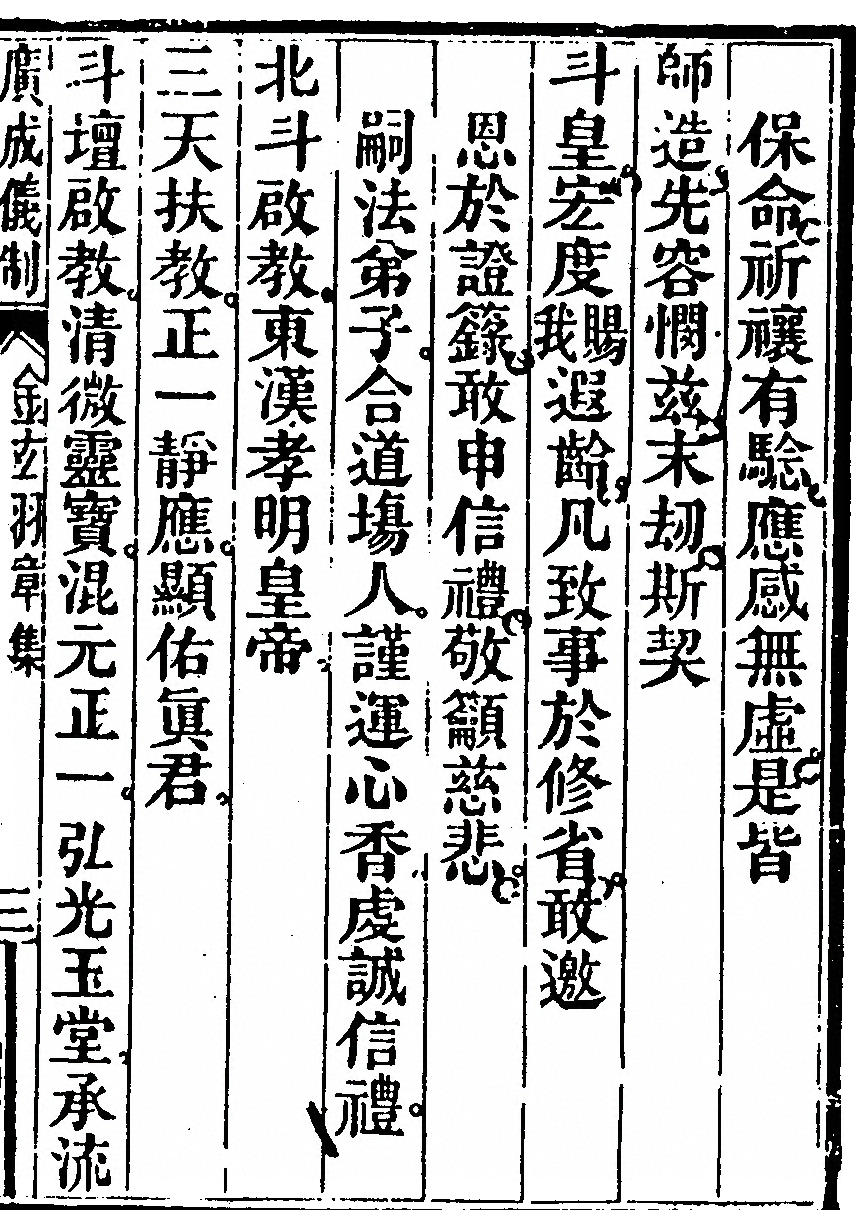 保命祈禳有騐應感無虛是皆
師造先容憫茲末刼斯契
斗皇宏度賜我遐齡凡致事於修省敢邀
恩於證籙敢申信禮敬籲慈悲
嗣法弟子合道塲人謹運心香虔誠信禮
北斗啟教東漢孝明皇帝
三天扶教正一靜應顯佑眞君
斗壇啟教清微靈寶混元正一弘光玉堂承流
廣成儀制
金玄羽章集
三